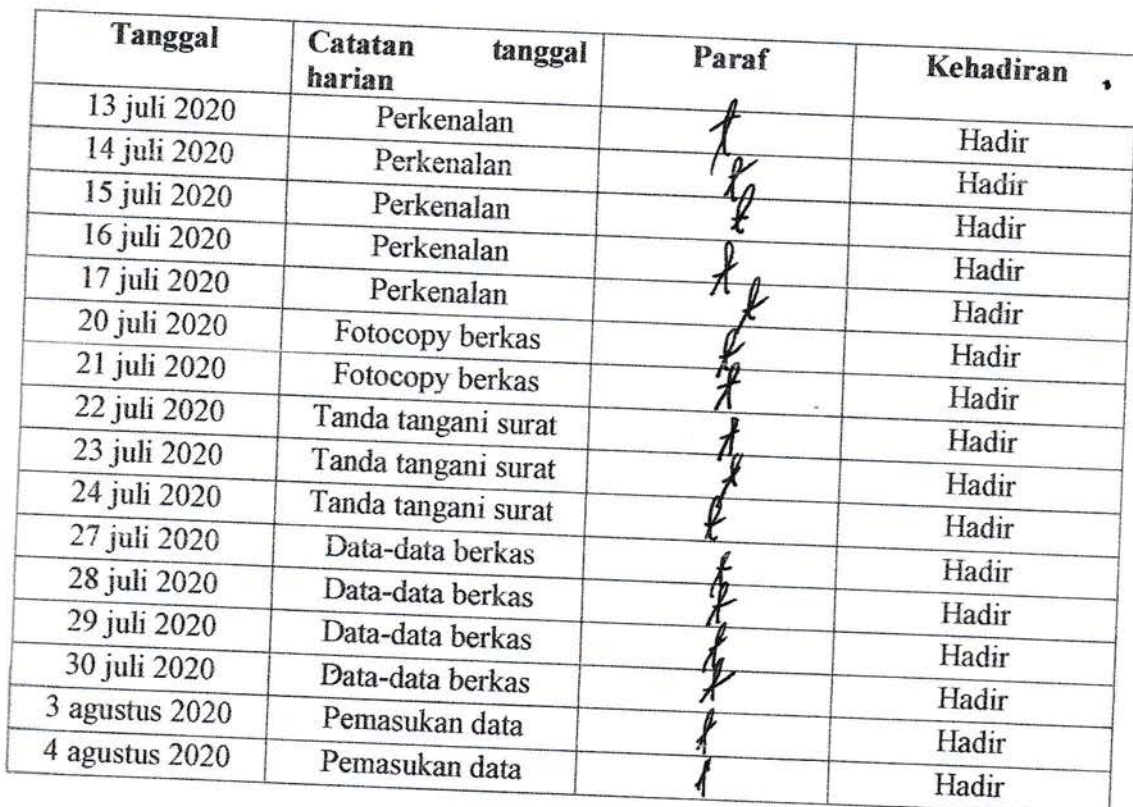 Tanggal Catatan tanggal harian Paraf Kehadiran
13 juli 2020 Perkenalan Hadir
14 juli 2020 Perkenalan Hadir
15 juli 2020 Perkenalan Hadir
16 juli 2020 Perkenalan Hadir
17 juli 2020 Perkenalan Hadir
20 juli 2020 Fotocopy berkas Hadir
21 juli 2020 Fotocopy berkas Hadir
22 juli 2020 Tanda tangani surat Hadir
23 juli 2020 Tanda tangani surat Hadir
24 juli 2020 Tanda tangani surat Hadir
27 juli 2020 Data-data berkas Hadir
28 juli 2020 Data-data berkas Hadir
29 juli 2020 Data-data berkas Hadir
30 juli 2020 Data-data berkas Hadir
3 agustus 2020 Pemasukan data Hadir
4 agustus 2020 Pemasukan data Hadir